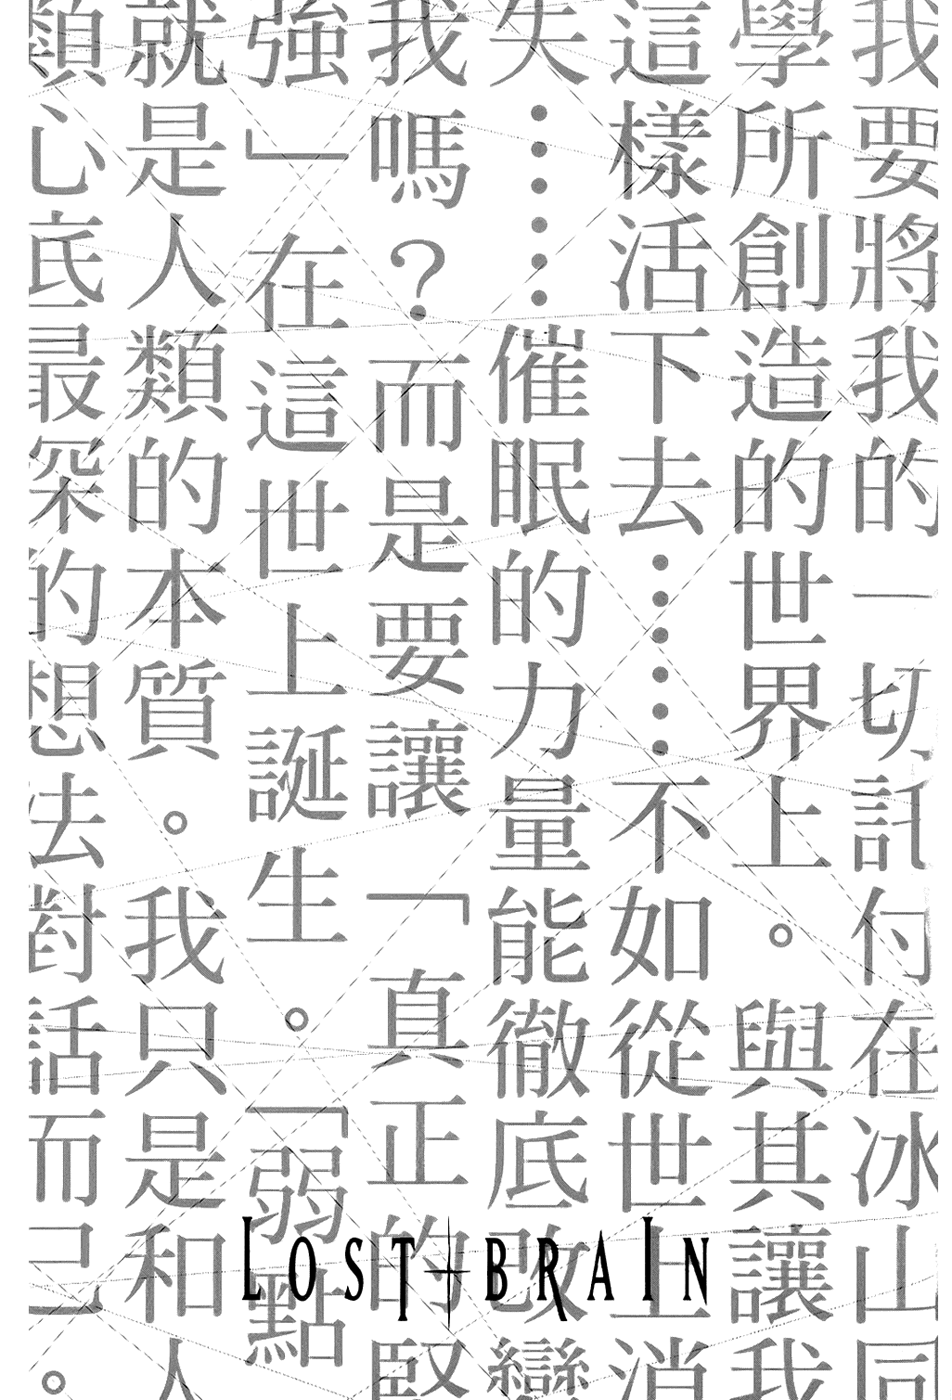 我要將我的一切託付在冰山同
學所創造的世界上。與其讓我
這樣活下去……不如從世上消
失……催眠的力量能徹底改變
我嗎？而是要讓「真正的堅
強」在這世上誕生。「弱點
就是人類的本質。我只是和人
類心底最深的想法對話而已。
LOST+BRAIN